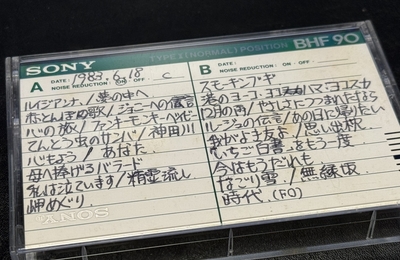 SONY
TYPE I (NORMAL) POSITION
BHF 90
A DATE: 1983.6.18 C
NOISE REDUCTION: ON OFF
B DATE:
NOISE REDUCTION: ON OFF
ルイジアンナ/夢の中へ
赤とんぼの歌/ジョニーへの伝言
心の旅/ファンキーモンキーベイビー
てんとう虫のサンバ/神田川
心もよう/あなた
母に捧げるバラード
私は泣いています/精霊流し
岬めぐり
スモーキンブギ
港のヨーコ・ヨコハマ・ヨコスカ
12月の雨/やさしさにつつまれたなら
ルージュの伝言/あの日に帰りたい
我がよき友よ/思い出枕
いちご白書をもう一度
今はもうだれも
なごり雪/無縁坂
時代 (FO)
SONY